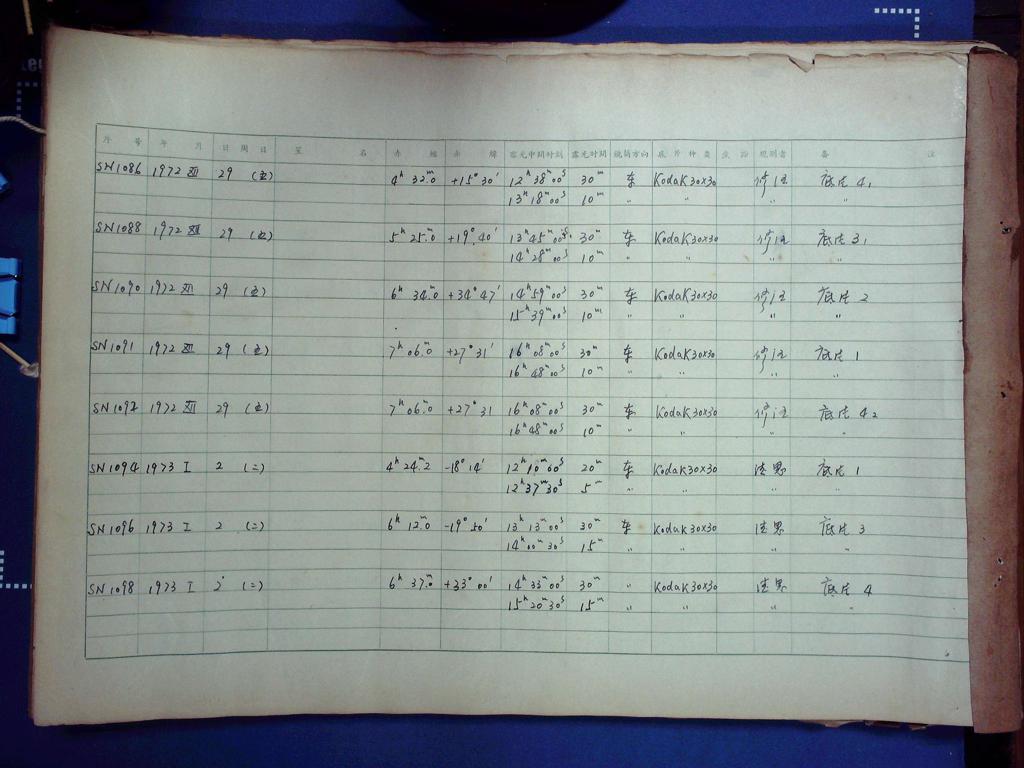 序 号 年 月 日 周 日 星 名 赤 经 赤 纬 露光中间时刻 露光时间 镜筒方向 底 片 种 类 观测者 备 注
SN1086 1972 XII 29 (五) 4ʰ 32ᵐ.0 +15° 30′ 12ʰ 38ᵐ 00ˢ 30ᵐ 东 Kodak 30×30 底片 4₁
13ʰ 18ᵐ 00ˢ 10ᵐ " " " "
SN1088 1972 XII 29 (五) 5ʰ 25ᵐ.0 +19° 40′ 13ʰ 45ᵐ 00ˢ 30ᵐ 东 Kodak 30×30 底片 3₁
14ʰ 28ᵐ 00ˢ 10ᵐ " " " "
SN1090 1972 XII 29 (五) 6ʰ 34ᵐ.0 +34° 47′ 14ʰ 59ᵐ 00ˢ 30ᵐ 东 Kodak 30×30 底片 2
15ʰ 39ᵐ 00ˢ 10ᵐ " " " "
SN1091 1972 XII 29 (五) 7ʰ 06ᵐ.0 +27° 31′ 16ʰ 08ᵐ 00ˢ 30ᵐ 东 Kodak 30×30 底片 1
16ʰ 48ᵐ 00ˢ 10ᵐ " " " "
SN1092 1972 XII 29 (五) 7ʰ 06ᵐ.0 +27° 31 16ʰ 08ᵐ 00ˢ 30ᵐ 东 Kodak 30×30 底片 4₂
16ʰ 48ᵐ 00ˢ 10ᵐ " " " "
SN1094 1973 I 2 (二) 4ʰ 24ᵐ.2 -18° 14′ 12ʰ 10ᵐ 00ˢ 20ᵐ 东 Kodak 30×30 底片 1
12ʰ 37ᵐ 30ˢ 5ᵐ " " " "
SN1096 1973 I 2 (二) 6ʰ 12ᵐ.0 -19° 50′ 13ʰ 13ᵐ 00ˢ 30ᵐ 东 Kodak 30×30 底片 3
14ʰ 00ᵐ 30ˢ 15ᵐ " " " "
SN1098 1973 I 2 (二) 6ʰ 37ᵐ.0 +33° 00′ 14ʰ 33ᵐ 00ˢ 30ᵐ " Kodak 30×30 底片 4
15ʰ 20ᵐ 30ˢ 15ᵐ " " " "